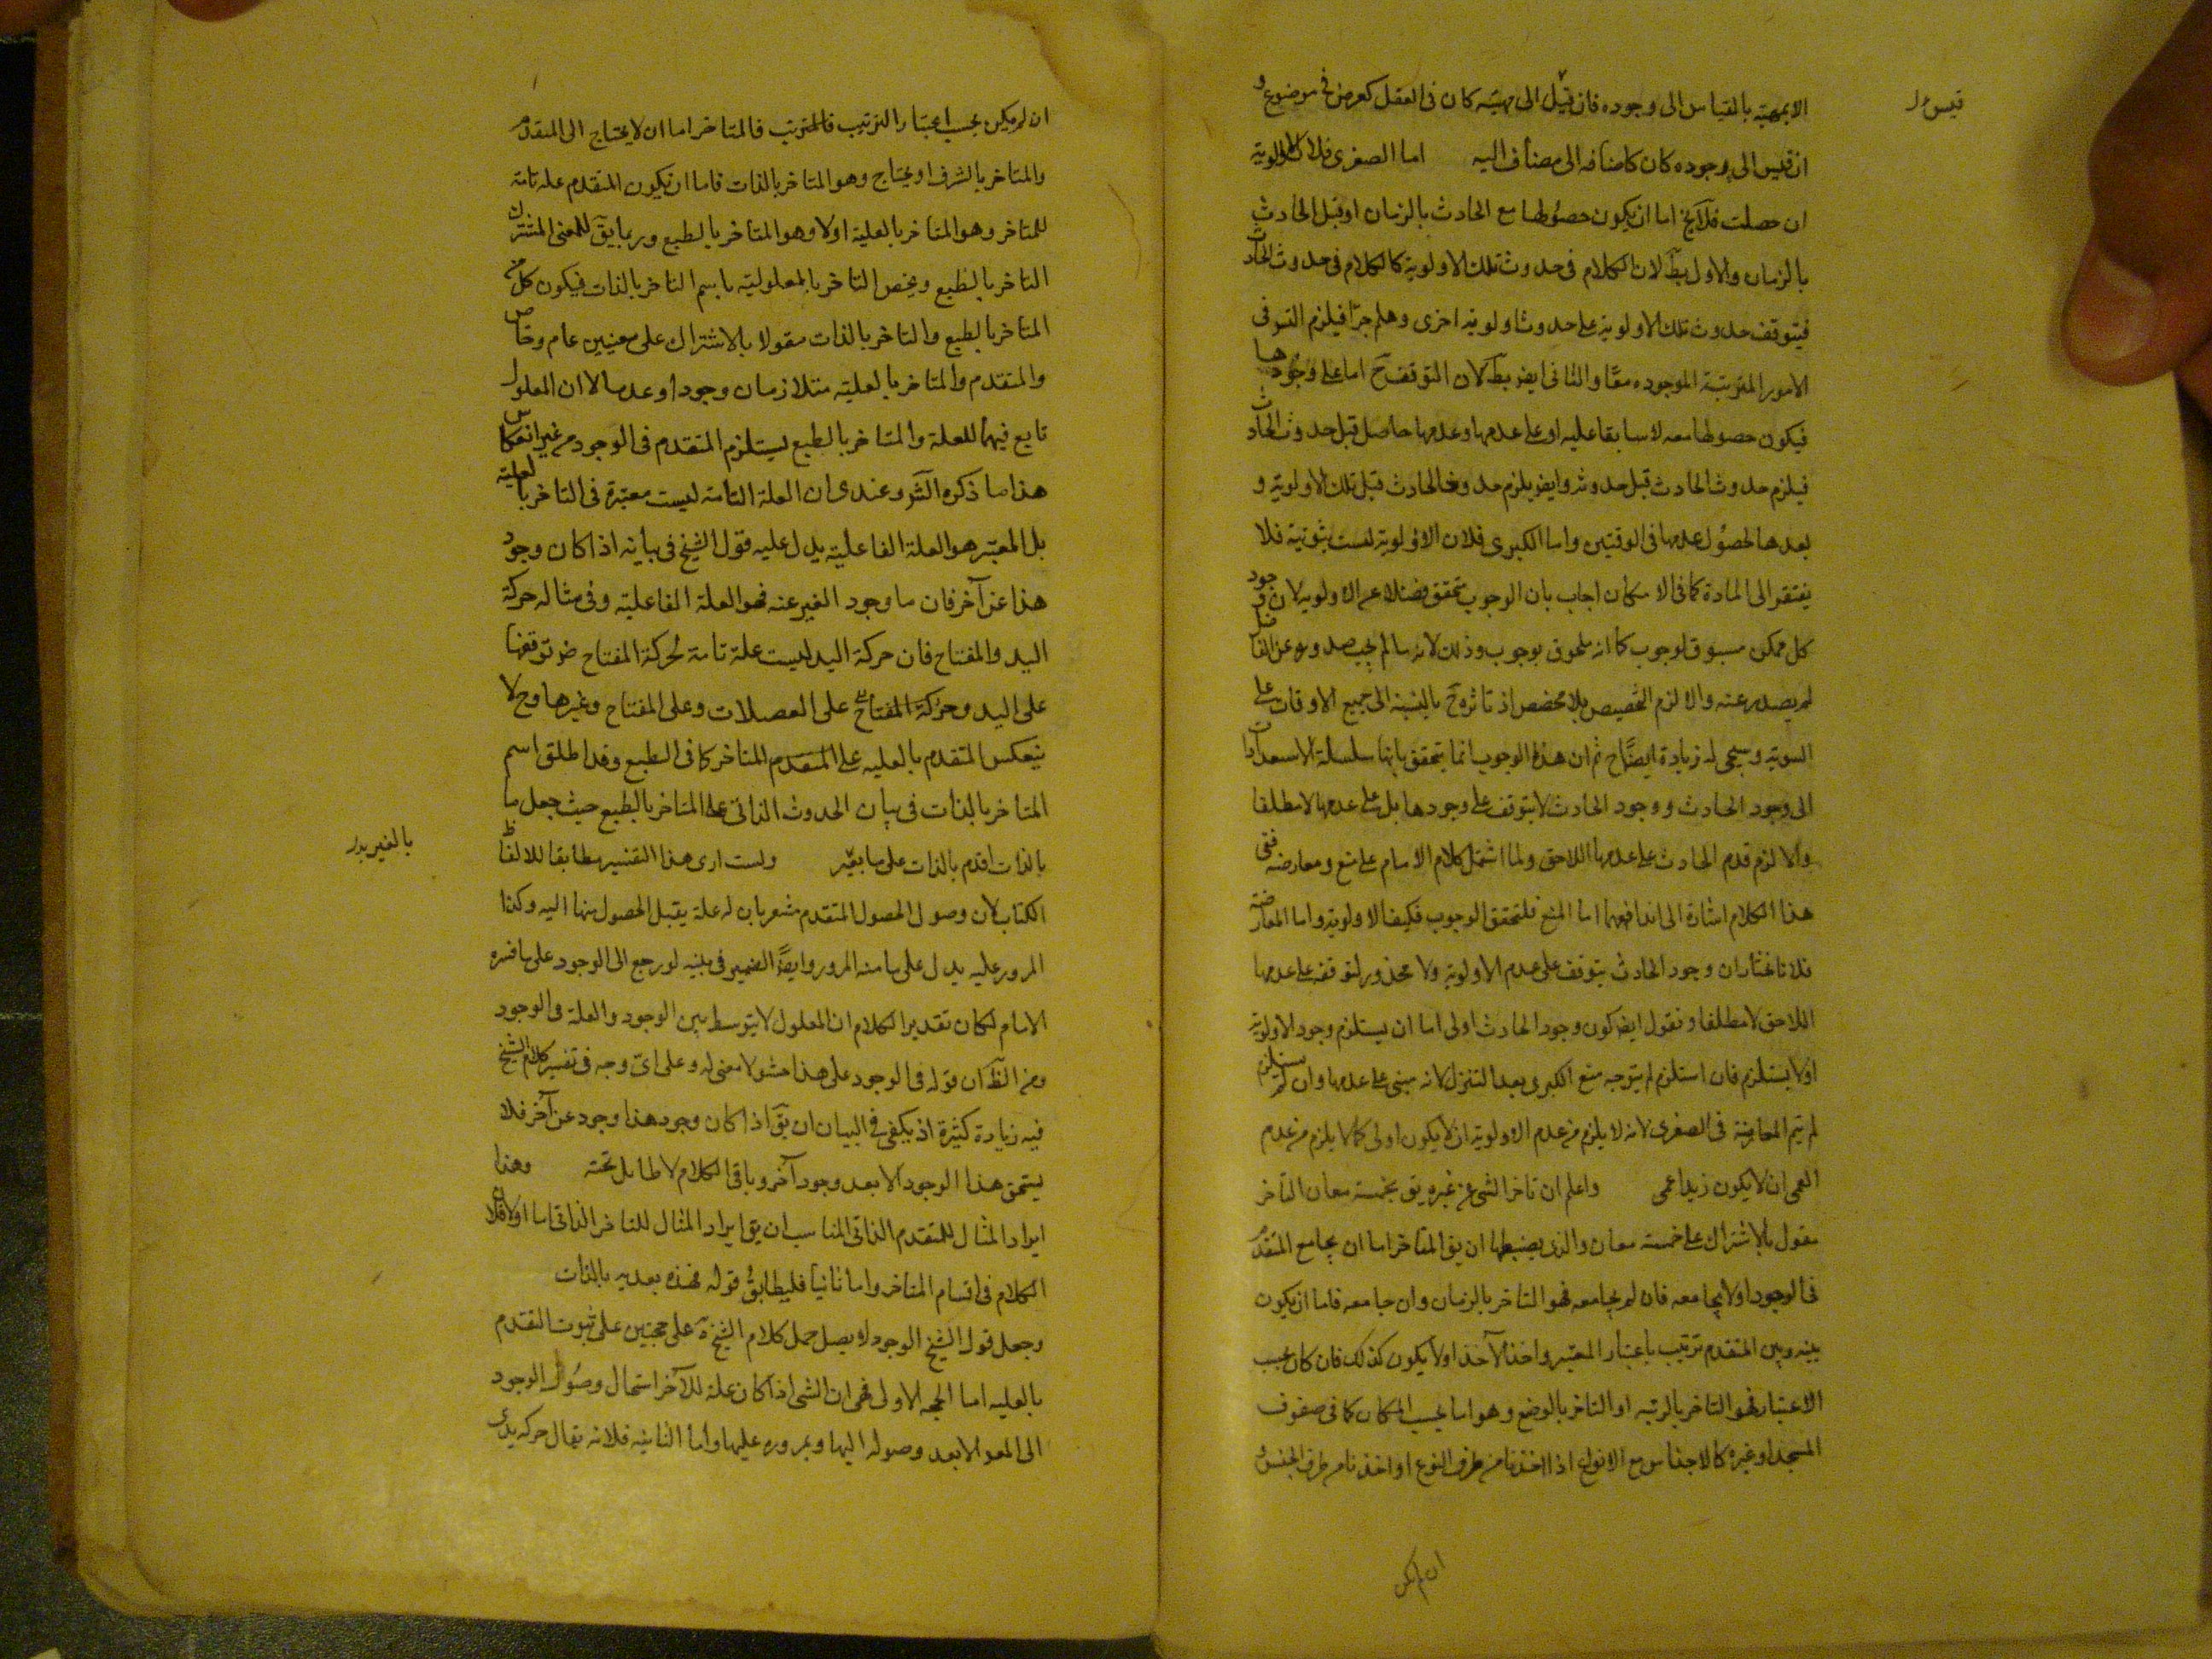 الا بمهيته بالقياس الى وجوده فان قيل الى مهيته كان فى العقل كعرض فى موضوع و
قيس بدل
ان قيس الى وجوده كان كاضافه الى مضاف اليه اما الصغرى فلان الاولوية
ان حصلت فلا يخ اما ان يكون حصولها مع الحادث بالزمان او قبل الحادث
بالزمان والاول بط لان الكلام فى حدوث تلك الاولوية كالكلام فى حدوث الحادث
فيتوقف حدوث تلك الاولوية على حدوث اولوية اخرى وهلم جرا فيلزم التوقف
الامور المترتبة الموجوده معا والثانى ايض بط لان التوقف ح اما على وجودها
فيكون حصولها معه لا سابقا عليه او على عدمها وعدمها حاصل قبل حدوث الحادث
فيلزم حدوث الحادث قبل حدوثه وايض يلزم حدوث الحادث قبل تلك الاولوية و
بعدها لحصول عدمها فى الوقتين واما الكبرى فلان الاولوية ليست ثبوتية فلا
يفتقر الى المادة كما فى الامكان اجاب بان الوجوب متحقق فضلا عن الاولوية لان وجود
كل ممكن مسبوق لوجوب كما انه ملحوق بوجوب وذلك لانه ما لم يجب صدوره عن الفاعل
لم يصدر عنه والا لزم التخصيص بلا مخصص اذ تاثره ح بالنسبة الى جميع الاوقات على
السوية وسيجى له زيادة ايضاح ثم ان هذا الوجوب انما يتحقق بانتها سلسلة الاستعدادات
الى وجود الحادث ووجود الحادث لا يتوقف على وجودها بل على عدمها لا مطلقا
والا لزم قدم الحادث على عدمها اللاحق ولما اشتمل كلام الامام على منع ومعارضه ففى
هذا الكلام اشارة الى اندافعهما اما المنع فلتحقق الوجوب فكيف الاولوية واما المعارضة
فلانا نختار ان وجود الحادث يتوقف على عدم الاولوية ولا محذور لتوقفه على عدمها
اللاحق لا مطلقا ونقول ايض كون وجود الحادث اولى اما ان يستلزم وجود الاولوية
او لا يستلزم فان استلزم لم يتوجه منع الكبرى بعد التنزل لانه مبنى على عدمها وان لم يستلزم
لم يتم المعارضة فى الصغرى لانه لا يلزم من عدم الاولوية ان لا يكون اولى كما لا يلزم من عدم
العمى ان لا يكون زيد اعمى واعلم ان تاخر الشى عن غيره يق بخمسة معان التاخر
مقول بالاشتراك على خمسة معان والذى يضبطها ان يق المتاخر اما ان يجامع المتقدم
فى الوجود او لا يجامعه فان لم يجامعه فهو التاخر بالزمان وان جامعه فاما ان يكون
بينه وبين المتقدم ترتيب باعتبار المعتبر واخذ الآخذ او لا يكون كذلك فان كان بحسب
الاعتبار فهو التاخر بالرتبه او التاخر بالوضع وهو اما بحسب المكان كما فى صفوف
المسجد او غيره كالاجناس مع الانواع اذا اخذنا من طرف النوع او اخذنا من طرف الجنس و
ان لم يكن
ان لم يكن بحسب اعتبار الترتيب فالمتاخر اما ان لا يحتاج الى المتقدم
والمتاخر بالشرف او يحتاج وهو المتاخر بالذات فاما ان يكون المتقدم علة تامة
للمتاخر وهو المتاخر بالعلية او لا وهو المتاخر بالطبع وربما يق للمعنى المشترك
التاخر بالطبع ويخص التاخر بالمعلولية باسم التاخر بالذات فيكون كل من
المتاخر بالطبع والتاخر بالذات مقولا بالاشتراك على معنيين عام وخاص
والمتقدم والمتاخر بالعلية متلازمان وجودا وعدما الا ان المعلول
تابع فيهما للعلة والمتاخر بالطبع يستلزم المتقدم فى الوجود من غير انعكاس
هذا ما ذكره الش وعندى ان العلة التامة ليست معتبرة فى التاخر بالعلية
بل المعتبر هو العلة الفاعلية يدل عليه قول الشيخ فى بيانه اذا كان وجود
هذا عن آخر فان ما وجود الغير عنه فهو العلة الفاعلية وفى مثاله حركة
اليد والمفتاح فان حركة اليد ليست علة تامة لحركة المفتاح ضرورة توقفها
على اليد وحركة المفتاح على العضلات وعلى المفتاح وغيرها وح لا
ينعكس المتقدم بالعليه على المتقدم المتاخر كما فى الطبع وقد اطلق اسم
المتاخر بالذات فى بيان الحدوث الذاتى على المتاخر بالطبع حيث جعل ما
بالذات اقدم بالذات على ما بغير ولست ارى هذا التفسير مطابقا لالفاظ
بالغير بدل
الكتاب لان وصول الحصول المتقدم مشعر بان له علة يقبل الحصول منها اليه وكذا
المرور عليه يدل على ما منه المرور وايضا الضمير فى بينه لو رجع الى الوجود على ما فسره
الامام لكان تقدير الكلام ان المعلول لا يتوسط بين الوجود والعلة فى الوجود
ومن الظ ان قوله فى الوجود على هذا حشو لا معنى له وعلى اى وجه فى تفسير كلام الشيخ
فيه زيادة كثيرة اذ يكفى فى البيان ان يق اذا كان وجود هذا وجود عن آخر فلا
يستحق هذا الوجود الا بعد وجود آخر وباقى الكلام لا طايل تحته وهذا
ايراد المثال للمتقدم الذاتى المناسب ان يق ايراد المثال للتاخر الذاتى اما اولا فلان
الكلام فى اقسام المتاخر واما ثانيا فليطابق قوله فهذه بعديه بالذات
وجعل قول الشيخ الوجود لا يصل حمل كلام الشيخ على حجتين على ثبوت التقدم
بالعليه اما الحجه الاولى فهى ان الشى اذا كان علة للآخر استحال وصول الوجود
الى المعلول الا بعد وصوله اليها وبمروره عليها واما الثانيه فلانه يقال حركه يدى